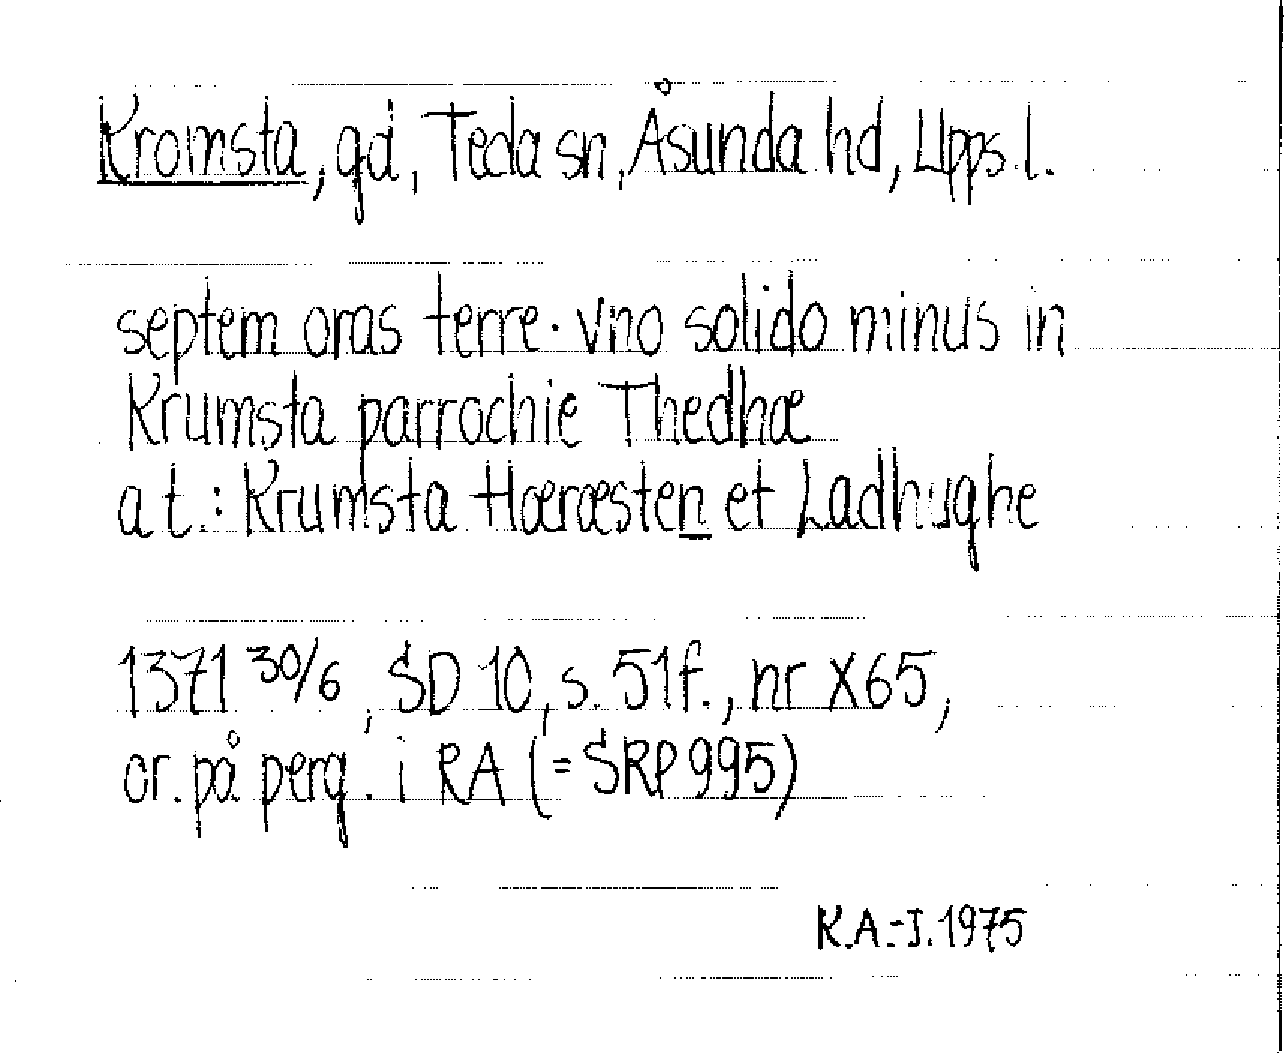 Kromsta, gd, Teda sn, Åsunda hd, Upps. l.
septem oras terre · vno solido minus in
Krumsta parrochie Thedhæ
at.: Krumsta Hæræsten et Ladhughe
1371 30/6, SD 10, s. 51f., nr X65,
or. på perg. i RA (= SRP 995)
K.A.-J. 1975